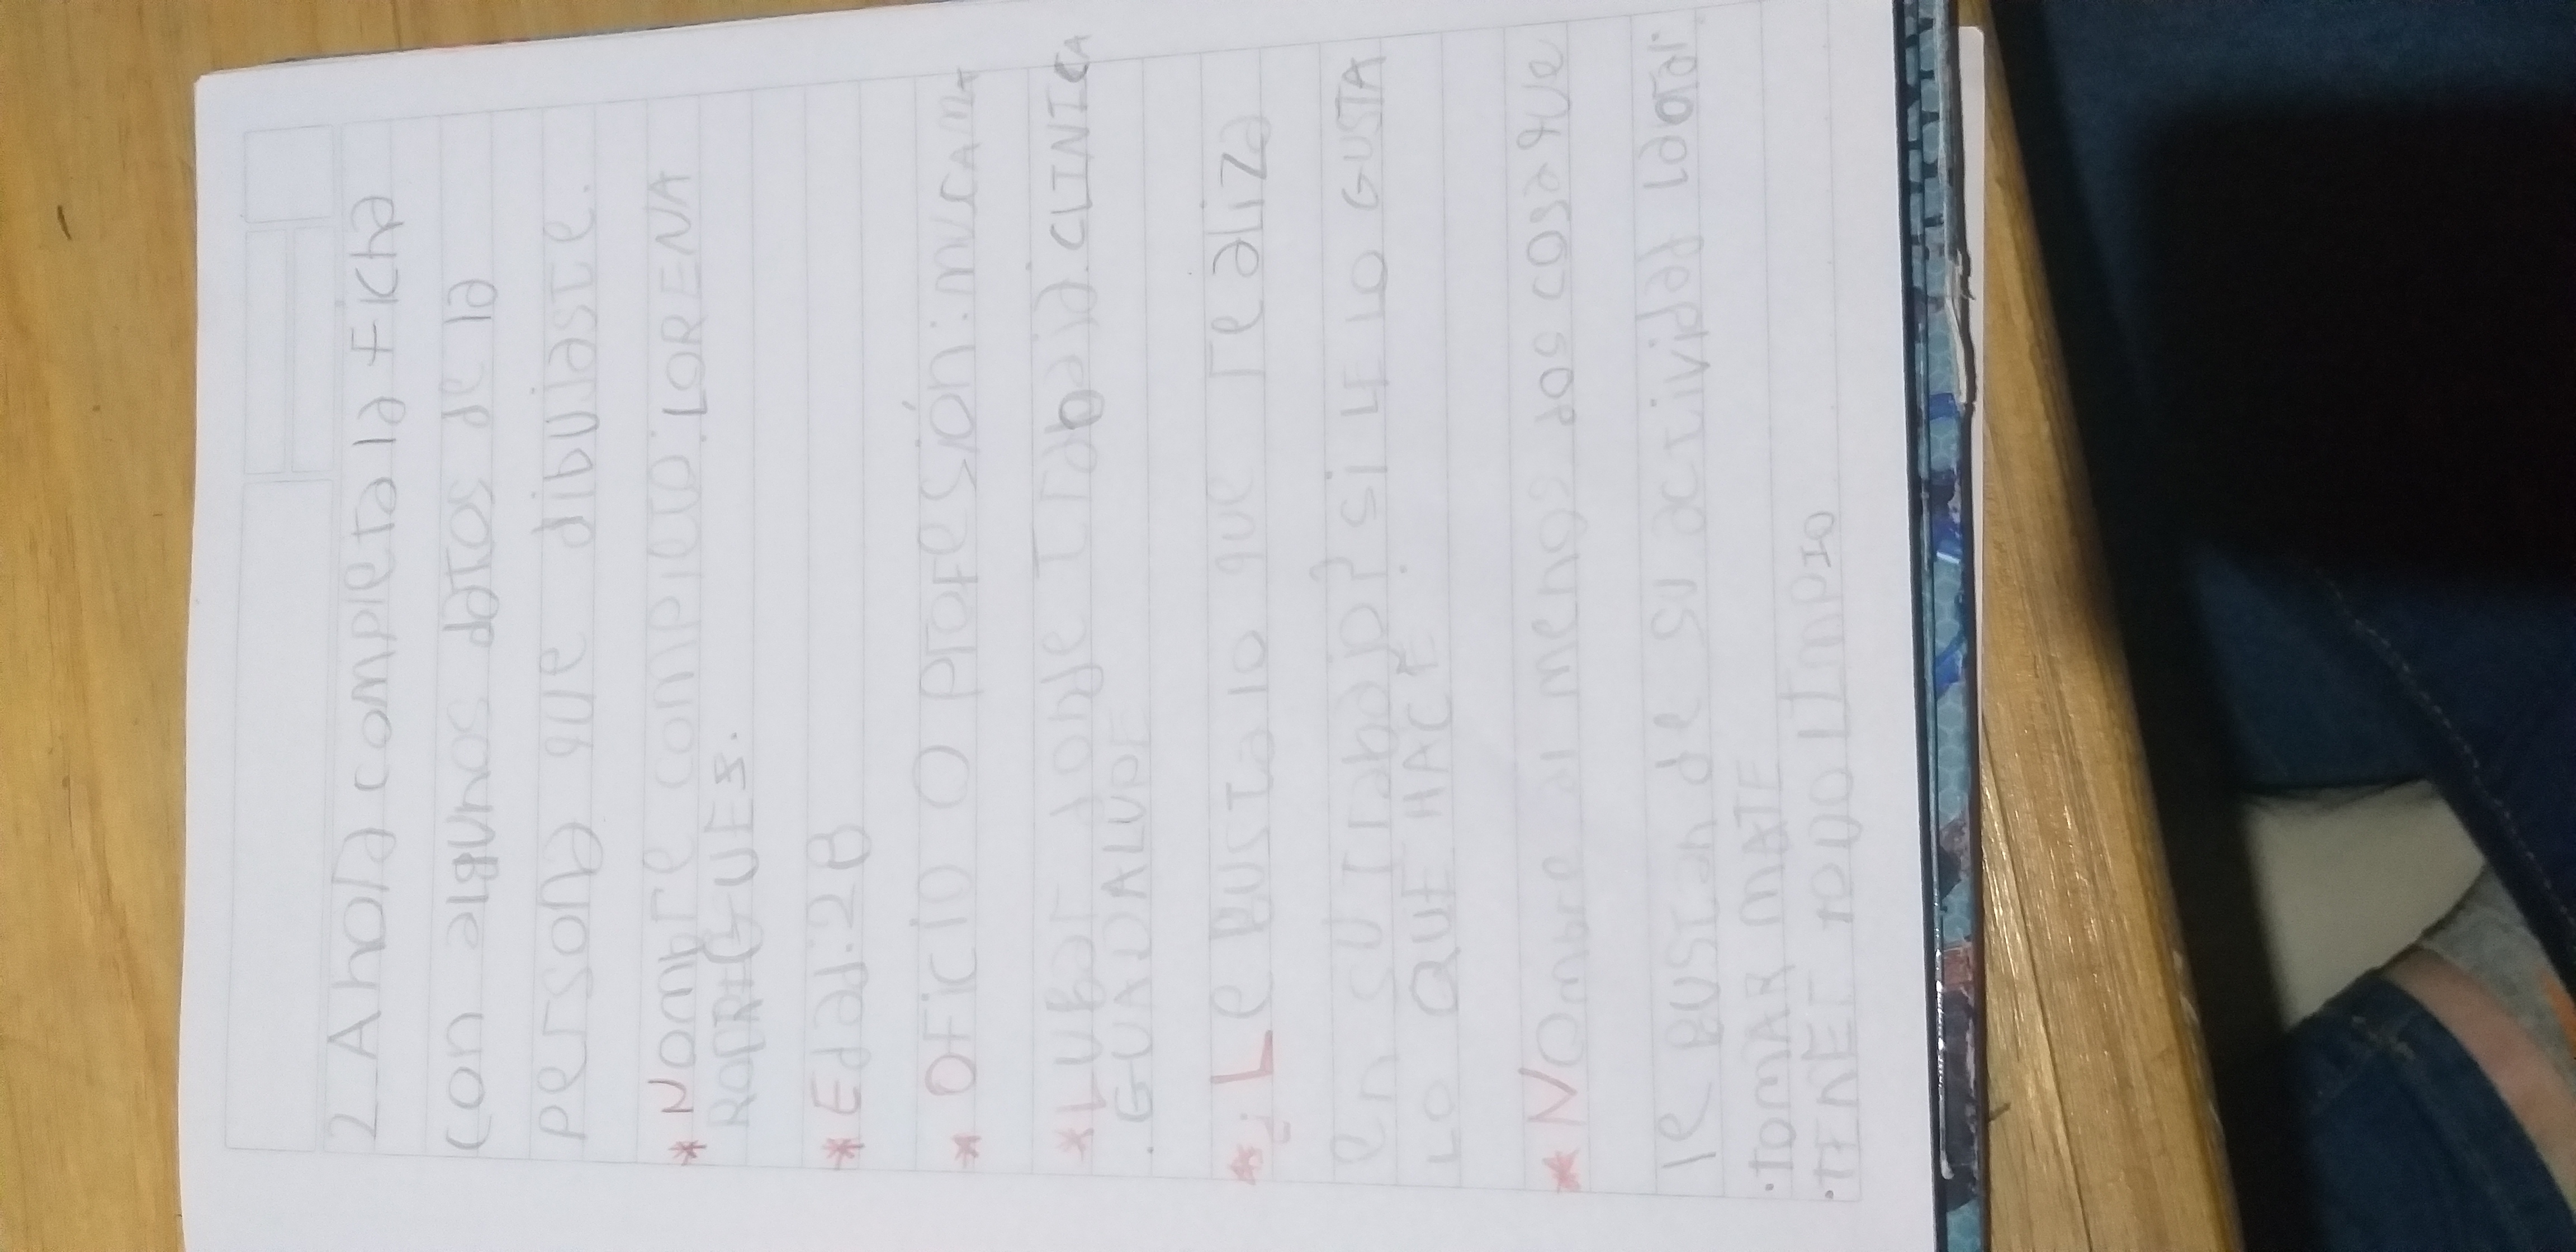 2_Ahora completa la ficha
con algunos datos de la
persona que dibujaste.
* Nombre completo: LORENA
RODRIGUES.
* Edad: 28
* Oficio o profesión:
* Lugar donde Trabaja: CLINICA
. GUADALUPE
* ¿Le gusta lo que realiza
en su trabajo? Si LE LO GUSTA
LO QUE HACE
* Nombre al menos dos cosa que
le gustan de su actividad
. TOMAR MATE
. TENER TODO LIMPIO